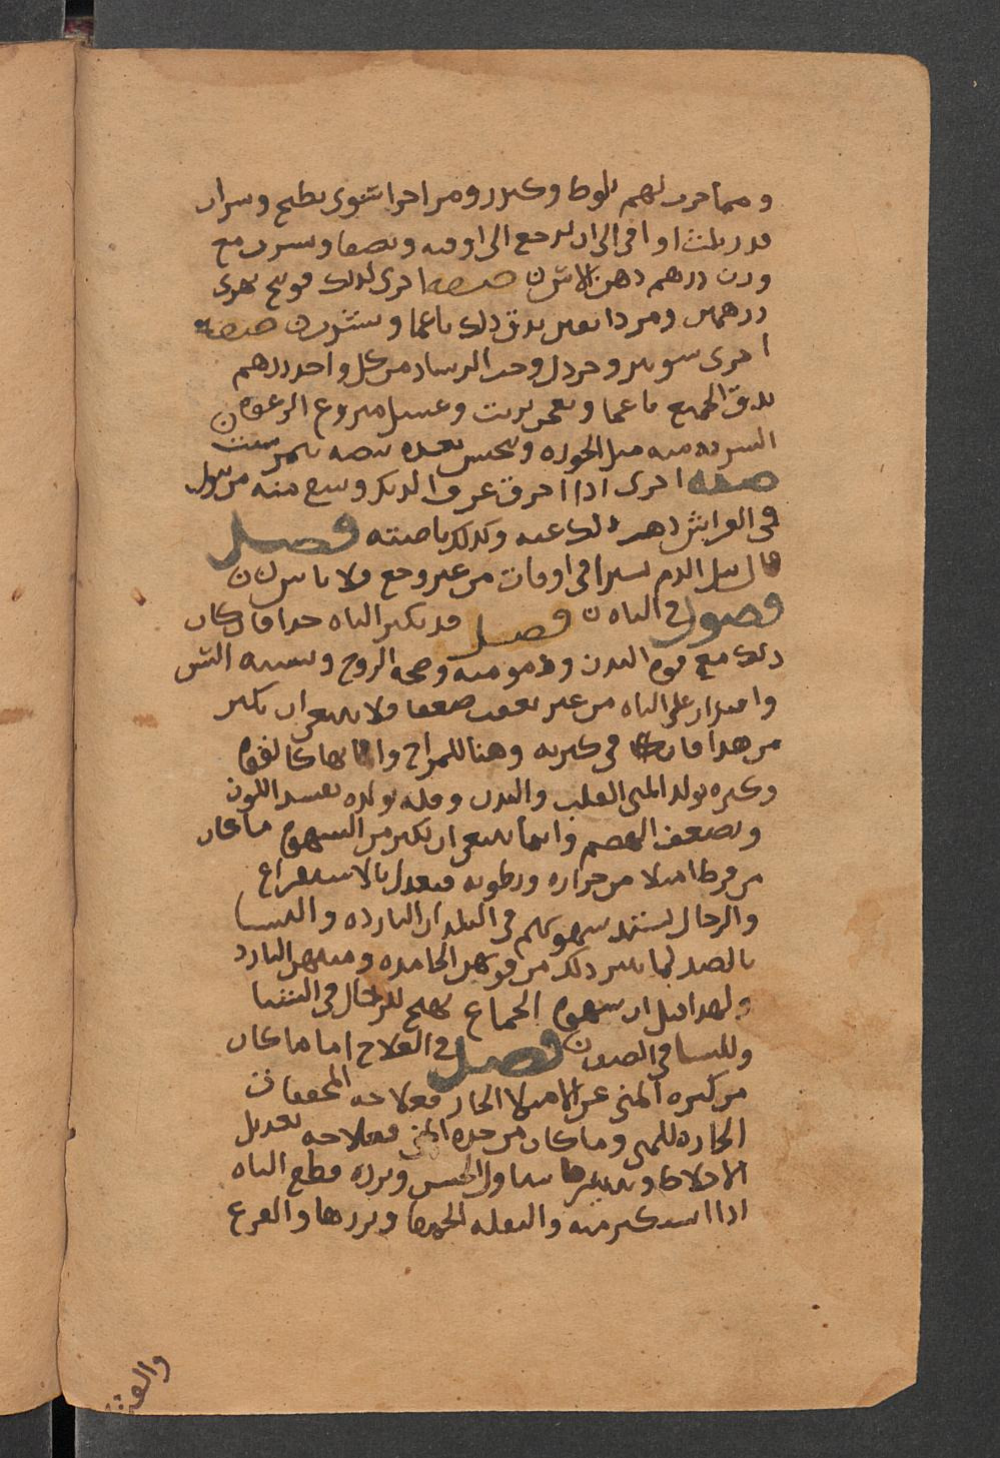 ومما جرب لهم بلوط وكندر ومر اجزا سوى يطبخ وسراب
قدر ثلث اواقى الى ان يرجع الى اوقيه ونصف ويشرب مع
وزن درهم دهن الاس صفه اخرى لذلك فوتنج نهرى
درهمين ومر دانقين يدق ذلك ناعما ويشرب صفه
اخرى شونيز وخردل وحب الرشاد من كل واحد درهم
يدق الجميع ناعما ويعجن بزيت وعسل منزوع الرغوه
الشربه منه مثل الجوزه ويتحسى بعده بيضه نيمرشت
صفه اخرى اذا احرق عرف الديك وسقى منه من يبول
فى الفراش ذهب ذلك عنه وكذلك خاصيته فصل
قال يبل الدم يسيرا فى اوقات من غير وجع ولا باس
فصول فى الباه فصل قد يكثر الباه جدا فان كان
ذلك مع قوه البدن ودمويته وصحه الروح وسببه الشبق
واقتدار على الباه من غير يعقب ضعفا ولا ينبغى ان يكثر
من هذا فان فى كثرته وهنا للمزاج وانهاكا لقوه
وكثره تولد المنى القلب والبدن وقله تولده يفسد اللون
ويضعف الهضم وانما ينبغى ان يكثر من الشهوه ما كان
من فرط امتلا من حراره ورطوبه فيعدل بالاستفراغ
والرجال تشتد شهوتهم فى البلدان البارده والنسا
بالضد لما يثير ذلك من قوتهن الجامده ومنيهن البارد
ولهذا قيل ان شهوه الجماع تهيج للرجال فى الشتا
وللنسا فى الصيف فصل فى العلاج اما ما كان
من كثره المنى عن الامتلا الحار فعلاجه المجففات
الحاره للمنى وما كان من حده المنى فعلاجه تعديل
الاخلاط وتدبيرها بتناول الخس وبزره قطع الباه
اذا استكثر منه والبقله الحمقا وبزرها والقرع